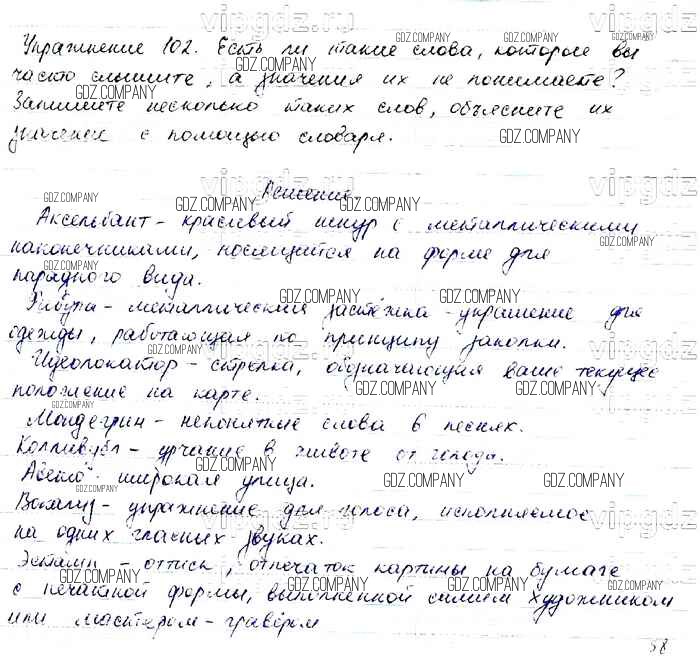 Упражнение 102. Есть ли такие слова, которые вы
часто слышите, а значения их не понимаете?
Запишите несколько таких слов, объясните их
значения с помощью словаря.
Решение
Аксельбант - красивый шнур с металлическими
наконечниками, носящийся на форме для
парадного вида.
Фибула - металлический застёжка - украшение для
одежды, работающая по принципу заколки.
- стрелка, обозначающая ваше текущее
положение на карте.
Мондегрин - непонятные слова в песнях.
- урчание в животе от голода.
широкая улица.
Вокализ - упражнение для голоса, исполняемое
на одних гласных звуках.
Эстамп - оттиск, отпечаток картины на бумаге
с печатной формы, выполненной самим художником
или мастером - гравёром
58
vipgdz.ru
GDZ.COMPANY